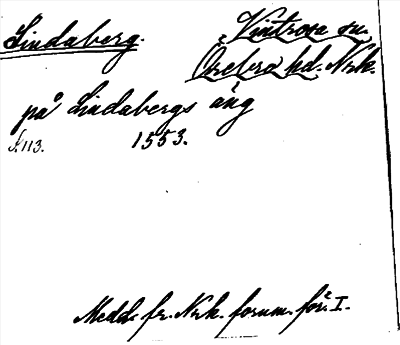 Lindaberg.
Vintrosa sn.
Örebro hd. Nrk.
på Lindabergs äng
s. 113. 1553.
Medd. fr. Nrk. fornm. för. I.